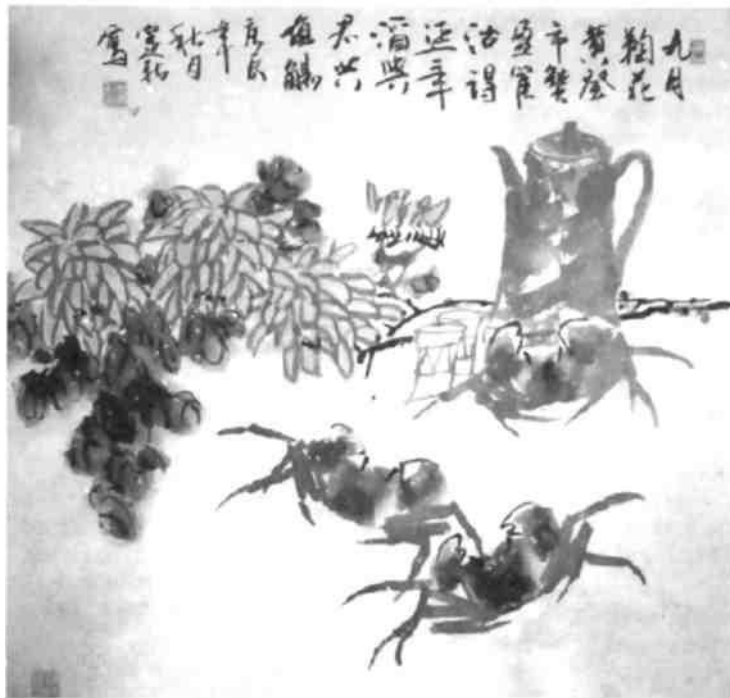 九月
鞠花
黄登
市蟹
盈筐
沽得
延年
酒與
君共
觴
庚辰
年
秋月
寫